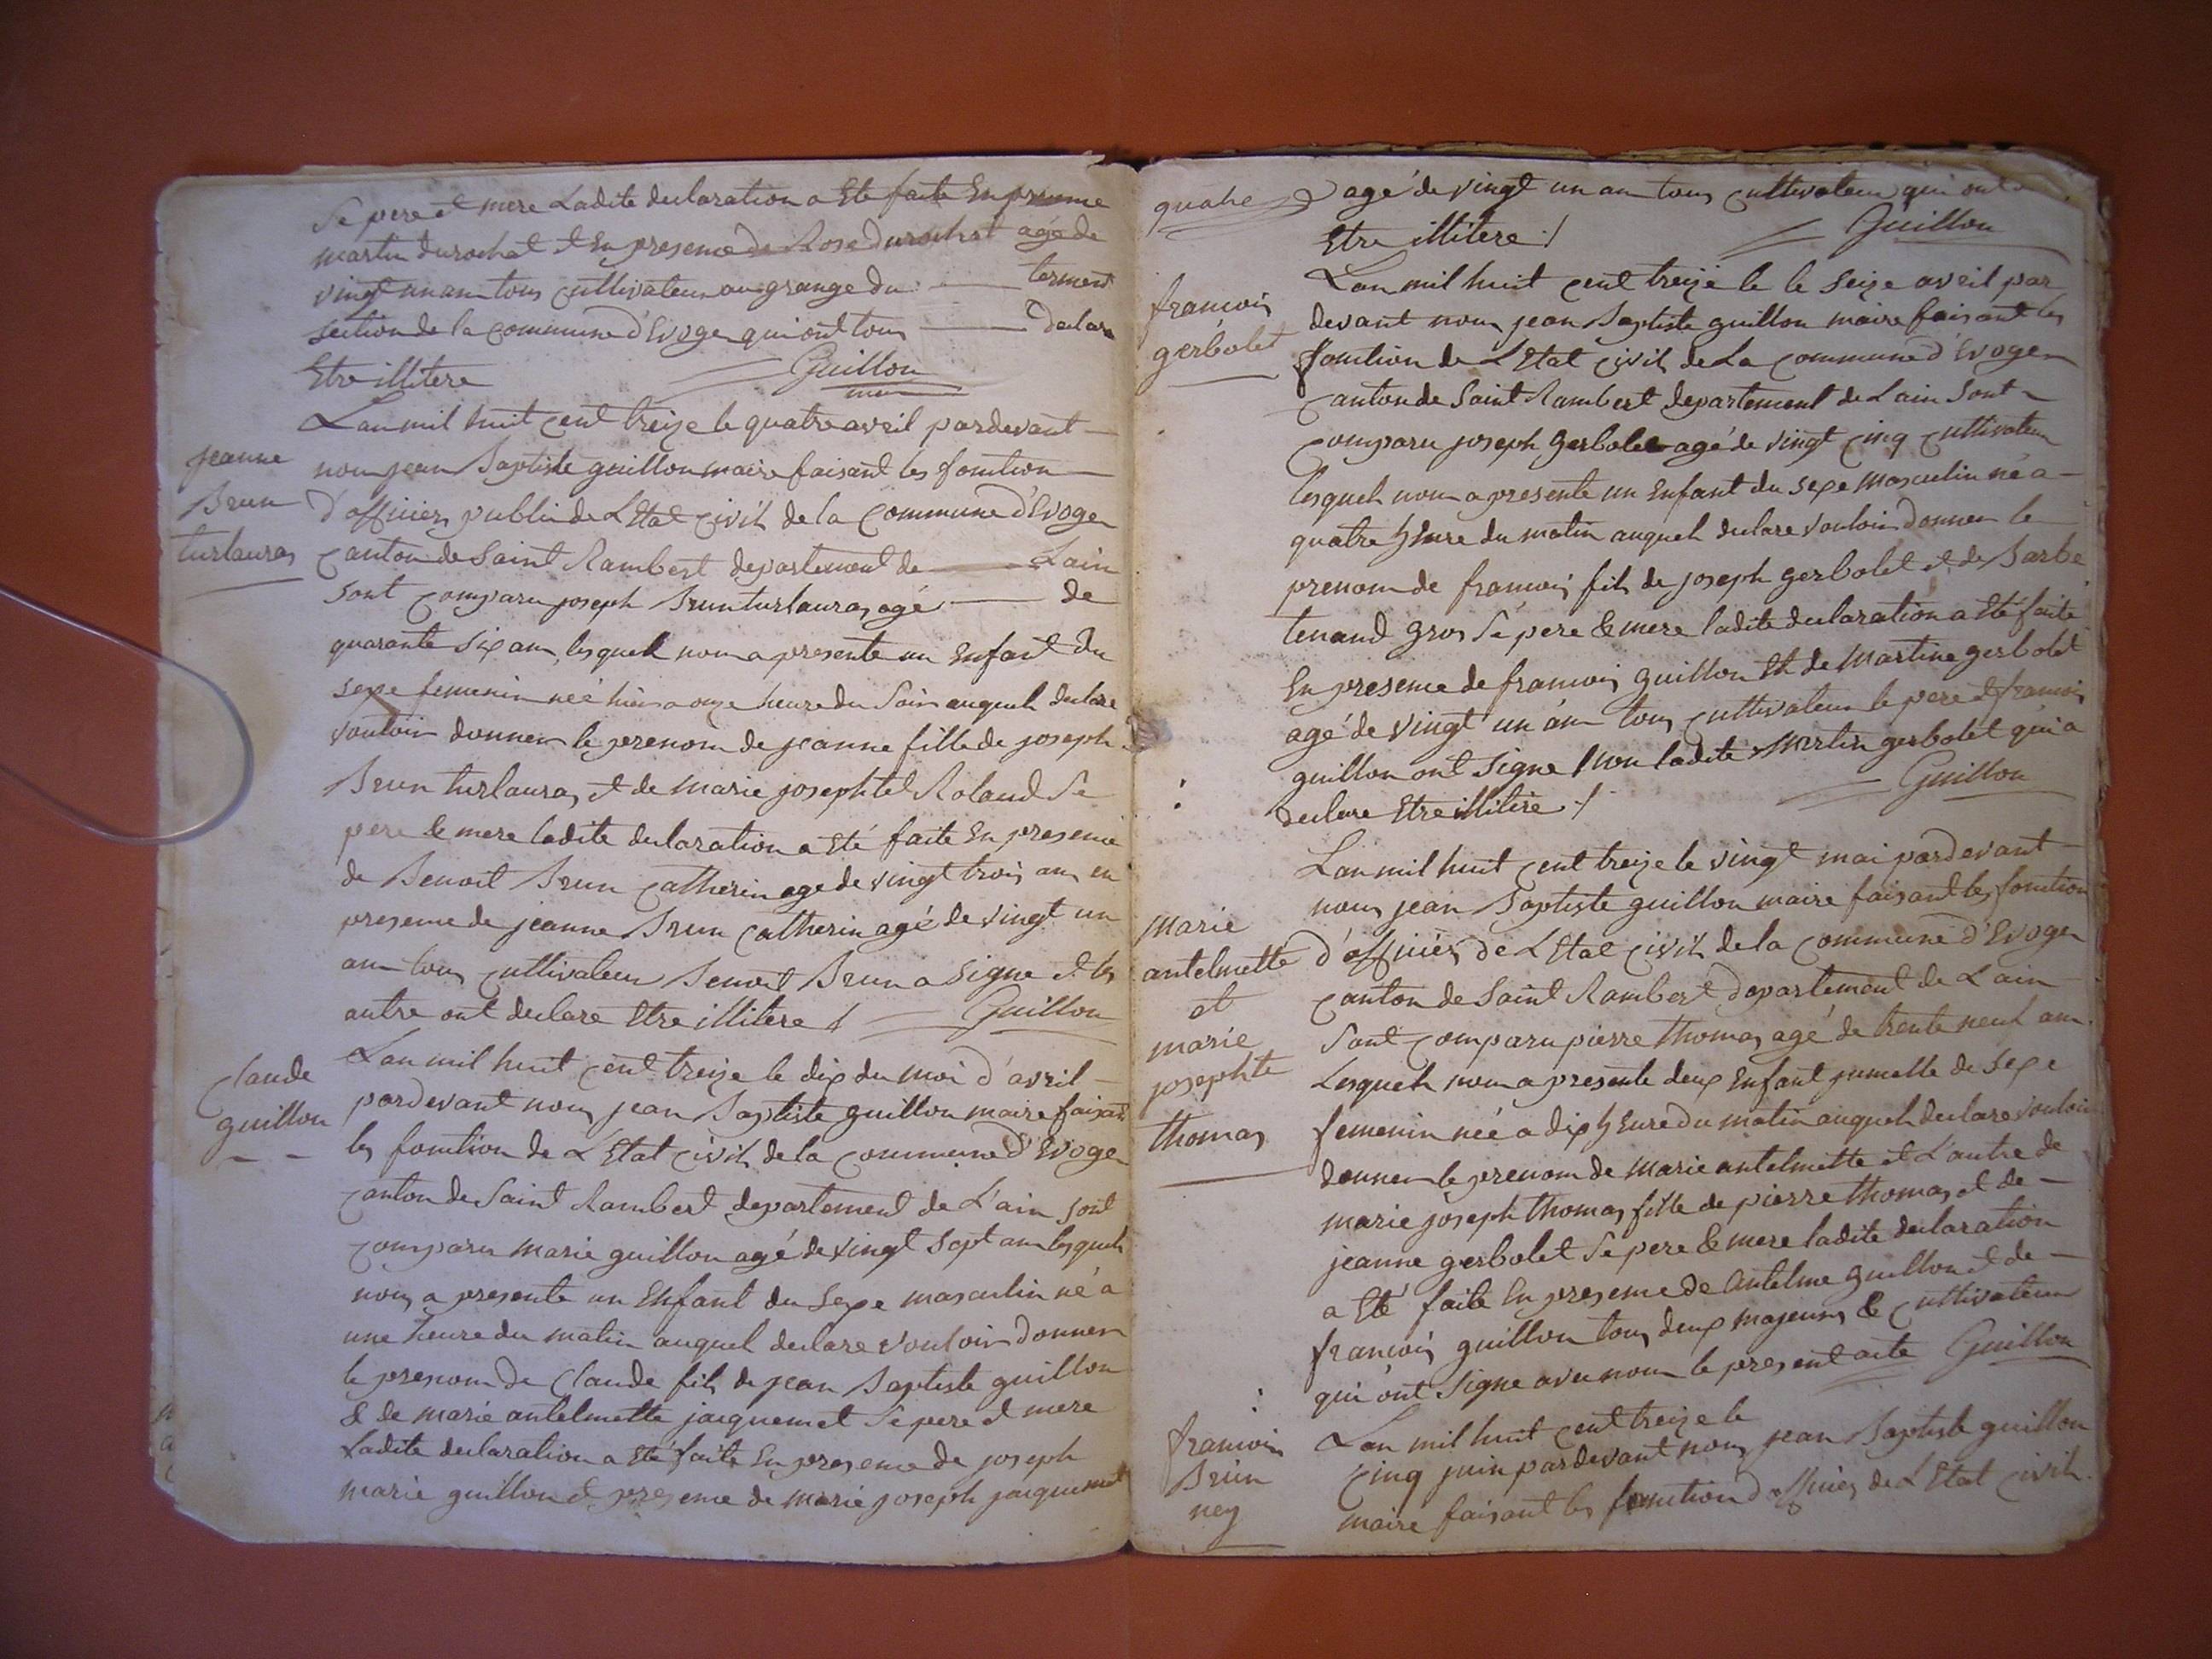 Se pere et mere Ladite declaration a Ete faite En
martin durochat et En presence de Rose durochat agé de
vingt un an tous cultivateur au grange du torment
section de la commune d'Evoge qui ont tous declare
Etre illitere Guillon
Lan mil huit cent treize le quatre avril pardevant
jeanne
Brun
turlauras
nous jean Baptiste guillon maire faisant les fonction
d'officier public de L'Etat civil de la Commune d'Evoge
canton de Saint Rambert departement de Lain
sont comparu joseph Brun turlauras agé de
quarante six ans, lesquel nous a presente un Enfant du
sexe femenin néé hier a onze heure du Soir auquel declare
vouloir donner le prenom de jeanne fille de joseph
Brun turlauras et de marie josephte Roland Se
pere & mere ladite declaration a Eté faite En presence
de Benoit Brun Catherin age de vingt trois ans en
presence de jeanne Brun Catherin agé de vingt un
an tous cultivateur Benoit Brun a Signe et les
autre ont declare Etre illitere / Guillon
Claude
guillon
Lan mil huit cent treize le dix du moi d'avril
pardevant nous jean Baptiste guillon maire faisant
les fonction de L'Etat civil de la commune d'Evoge
canton de Saint Rambert departement de L'ain sont
comparu marie guillon agé de vingt sept an lesquels
nous a presente un Enfant du Sexe masculin né a
une heure du matin auquel declare vouloir donner
le prenom de Claude fils de jean Baptiste guillon
& de marie antelmette jacquemet Se pere et mere
Ladite declaration a Eté faite En presence de joseph
marie guillon & presence de marie joseph jacquemet
quatre
agé de vingt un an tous cultivateur qui ont
Etre illitere / Guillon
francois
gerbolet
Lan mil huit cent treize le le seize avril par
devant nous jean Baptiste guillon maire faisant les
fonction de L'Etat civil de La commune d'Evoge
canton de Saint Rambert departement de Lain Sont
comparu joseph gerbolet agé de vingt cinq cultivateur
lesquels nous a presente un Enfant du sexe Masculin né a
quatre heure du matin auquel declare vouloir donner le
prenom de francois fils de joseph gerbolet et de Barbe
tenand gros Se pere & mere ladite declaration a Eté faite
En presence de francois guillon Et de Martine gerbolet
agé de vingt un an tous cultivateur le pere et francois
guillon ont Signe / non ladite Martin gerbolet qui a
declare Etre illitere / Guillon
Marie
antelmette
et
marie
josephte
thomas
Lan mil huit cent treize le vingt mai pardevant
nous jean Baptiste guillon maire faisant les fonction
d'officier de L'Etat civil de la commune d'Evoge
canton de Saint Rambert departement de Lain
Sont comparu pierre thomas agé de trente neuf an
Lesquels nous a presente deux Enfant jumelle du sexe
femenin néé a dix heure du matin auquel declare vouloir
donner le prenom de Marie antelmette et L'autre de
marie joseph thomas fille de pierre thomas et de
jeanne gerbolet Se pere & mere ladite declaration
a Eté faite En presence de antelme guillon et de
francois guillon tous deux majeurs & cultivateur
qui ont Signe avec nous le present acte Guillon
francois
Brun
ney
Lan mil huit cent treize le
cinq juin pardevant nous jean Baptiste guillon
maire faisant les fonction d'officier de L'Etat civil